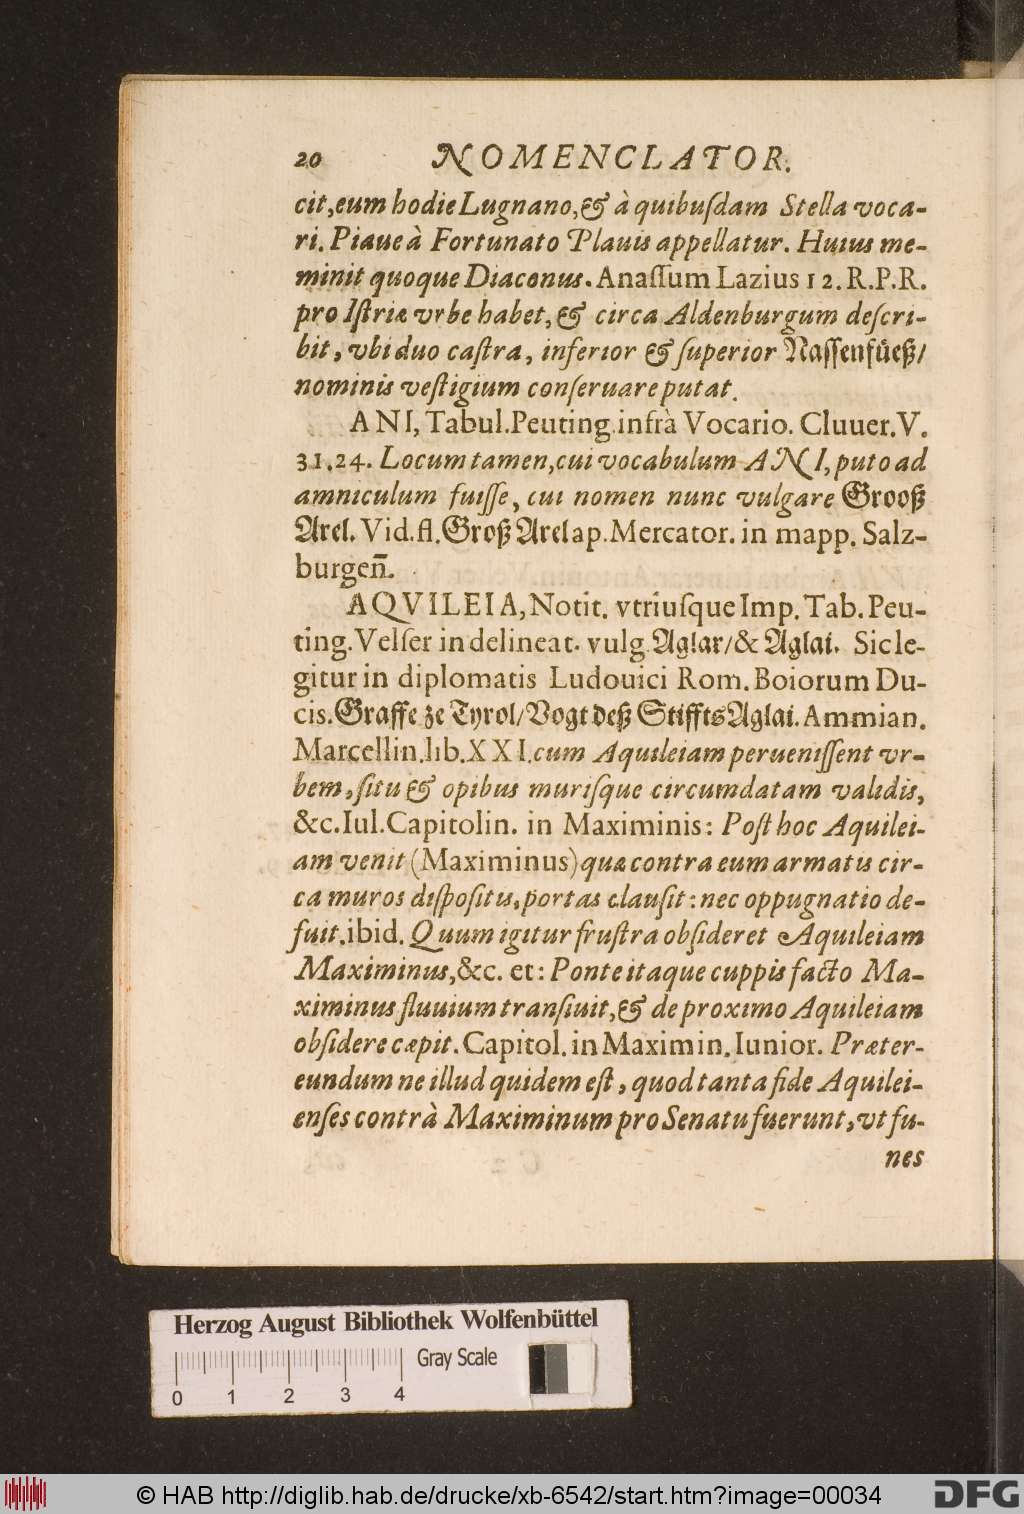 20 NOMENCLATOR.
cit,eum hodie Lugnano,& à quibuſdam Stella voca-
ri. Piaue à Fortunato Plauis appellatur. Huius me-
minit quoque Diaconus. Anaſſum Lazius 12. R.P.R.
pro Iſtriæ vrbe habet,& circa Aldenburgum deſcri-
bit, vbi duo caſtra, inferior & ſuperior Naſſenfüeß/
nominis veſtigium conſeruare putat.
ANI, Tabul.Peuting.infrà Vocario. Cluuer.V.
31.24. Locum tamen,cui vocabulum ANI, puto ad
amniculum fuiſſe, cui nomen nunc vulgare Grooß
Arel. Vid.fl.Groß Arel ap.Mercator. in mapp. Salz-
burgen̄.
AQVILEIA, Notit. vtriuſque Imp. Tab. Peu-
ting.Velſer in delineat. vulg.Aglar/& Aglai. Sic le-
gitur in diplomatis Ludouici Rom. Boiorum Du-
cis.Graffe ze Tyrol/Vogt deß Stiffts Aglai. Ammian.
Marcellin.lib.XXI.cum Aquileiam perueniſſent vr-
bem, ſitu & opibus muriſque circumdatam validis,
&c.Iul.Capitolin. in Maximinis: Poſt hoc Aquilei-
am venit (Maximinus) quæ contra eum armatis cir-
ca muros diſpoſitis, portas clauſit: nec oppugnatio de-
fuit.ibid. Quum igitur fruſtra obſideret Aquileiam
Maximinus,&c. et: Ponte itaque cuppis facto Ma-
ximinus fluuium tranſiuit,& de proximo Aquileiam
obſidere cæpit. Capitol. in Maximin. Iunior. Præter-
eundum ne illud quidem eſt, quod tanta fide Aquilei-
enſes contrà Maximinum pro Senatu fuerunt, vt fu-
nes
Herzog August Bibliothek Wolfenbüttel
Gray Scale
0 1 2 3 4
© HAB http://diglib.hab.de/drucke/xb-6542/start.htm?image=00034
DFG